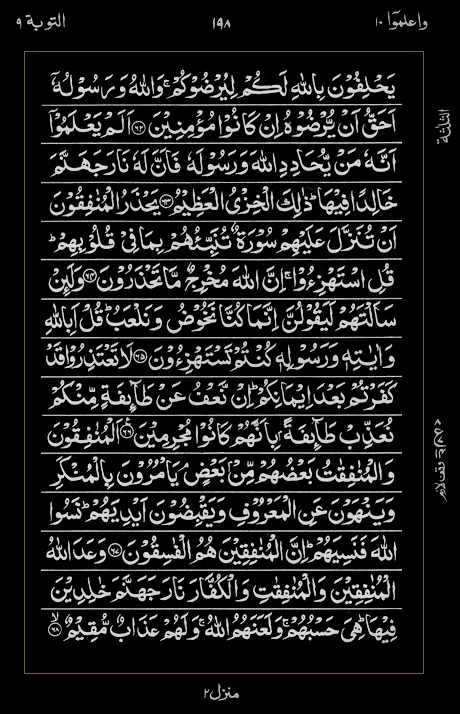 واعلموٓا ١٠ ١٩٨ التوبة ٩
يَحْلِفُوْنَ بِاللّٰهِ لَكُمْ لِيُرْضُوْكُمْ ۚ وَاللّٰهُ وَرَسُوْلُهٗۤ
اَحَقُّ اَنْ يُّرْضُوْهُ اِنْ كَانُوْا مُؤْمِنِيْنَ ﴿۶۲﴾ اَلَمْ يَعْلَمُوْۤا
اَنَّهٗ مَنْ يُّحَادِدِ اللّٰهَ وَرَسُوْلَهٗ فَاَنَّ لَهٗ نَارَ جَهَنَّمَ
خَالِدًا فِيْهَا ؕ ذٰلِكَ الْخِزْىُ الْعَظِيْمُ ﴿۶۳﴾ يَحْذَرُ الْمُنٰفِقُوْنَ
اَنْ تُنَزَّلَ عَلَيْهِمْ سُوْرَةٌ تُنَبِّئُهُمْ بِمَا فِىْ قُلُوْبِهِمْ ؕ
قُلِ اسْتَهْزِءُوْا ۚ اِنَّ اللّٰهَ مُخْرِجٌ مَّا تَحْذَرُوْنَ ﴿۶۴﴾ وَلَئِنْ
سَاَلْتَهُمْ لَيَقُوْلُنَّ اِنَّمَا كُنَّا نَخُوْضُ وَنَلْعَبُ ؕ قُلْ اَبِاللّٰهِ
وَاٰيٰتِهٖ وَرَسُوْلِهٖ كُنْتُمْ تَسْتَهْزِءُوْنَ ﴿۶۵﴾ لَا تَعْتَذِرُوْا قَدْ
كَفَرْتُمْ بَعْدَ اِيْمَانِكُمْ ؕ اِنْ نَّعْفُ عَنْ طَآئِفَةٍ مِّنْكُمْ
نُعَذِّبْ طَآئِفَةًۢ بِاَنَّهُمْ كَانُوْا مُجْرِمِيْنَ ﴿۶۶﴾ اَلْمُنٰفِقُوْنَ
وَالْمُنٰفِقٰتُ بَعْضُهُمْ مِّنْۢ بَعْضٍ ۘ يَاْمُرُوْنَ بِالْمُنْكَرِ
وَيَنْهَوْنَ عَنِ الْمَعْرُوْفِ وَيَقْبِضُوْنَ اَيْدِيَهُمْ ؕ نَسُوا
اللّٰهَ فَنَسِيَهُمْ ؕ اِنَّ الْمُنٰفِقِيْنَ هُمُ الْفٰسِقُوْنَ ﴿۶۷﴾ وَعَدَ اللّٰهُ
الْمُنٰفِقِيْنَ وَالْمُنٰفِقٰتِ وَالْكُفَّارَ نَارَ جَهَنَّمَ خٰلِدِيْنَ
فِيْهَا ؕ هِىَ حَسْبُهُمْ ۚ وَلَعَنَهُمُ اللّٰهُ ۚ وَلَهُمْ عَذَابٌ مُّقِيْمٌ ۙ﴿۶۸﴾
الثلثة
وقف لازم
منزل ٢